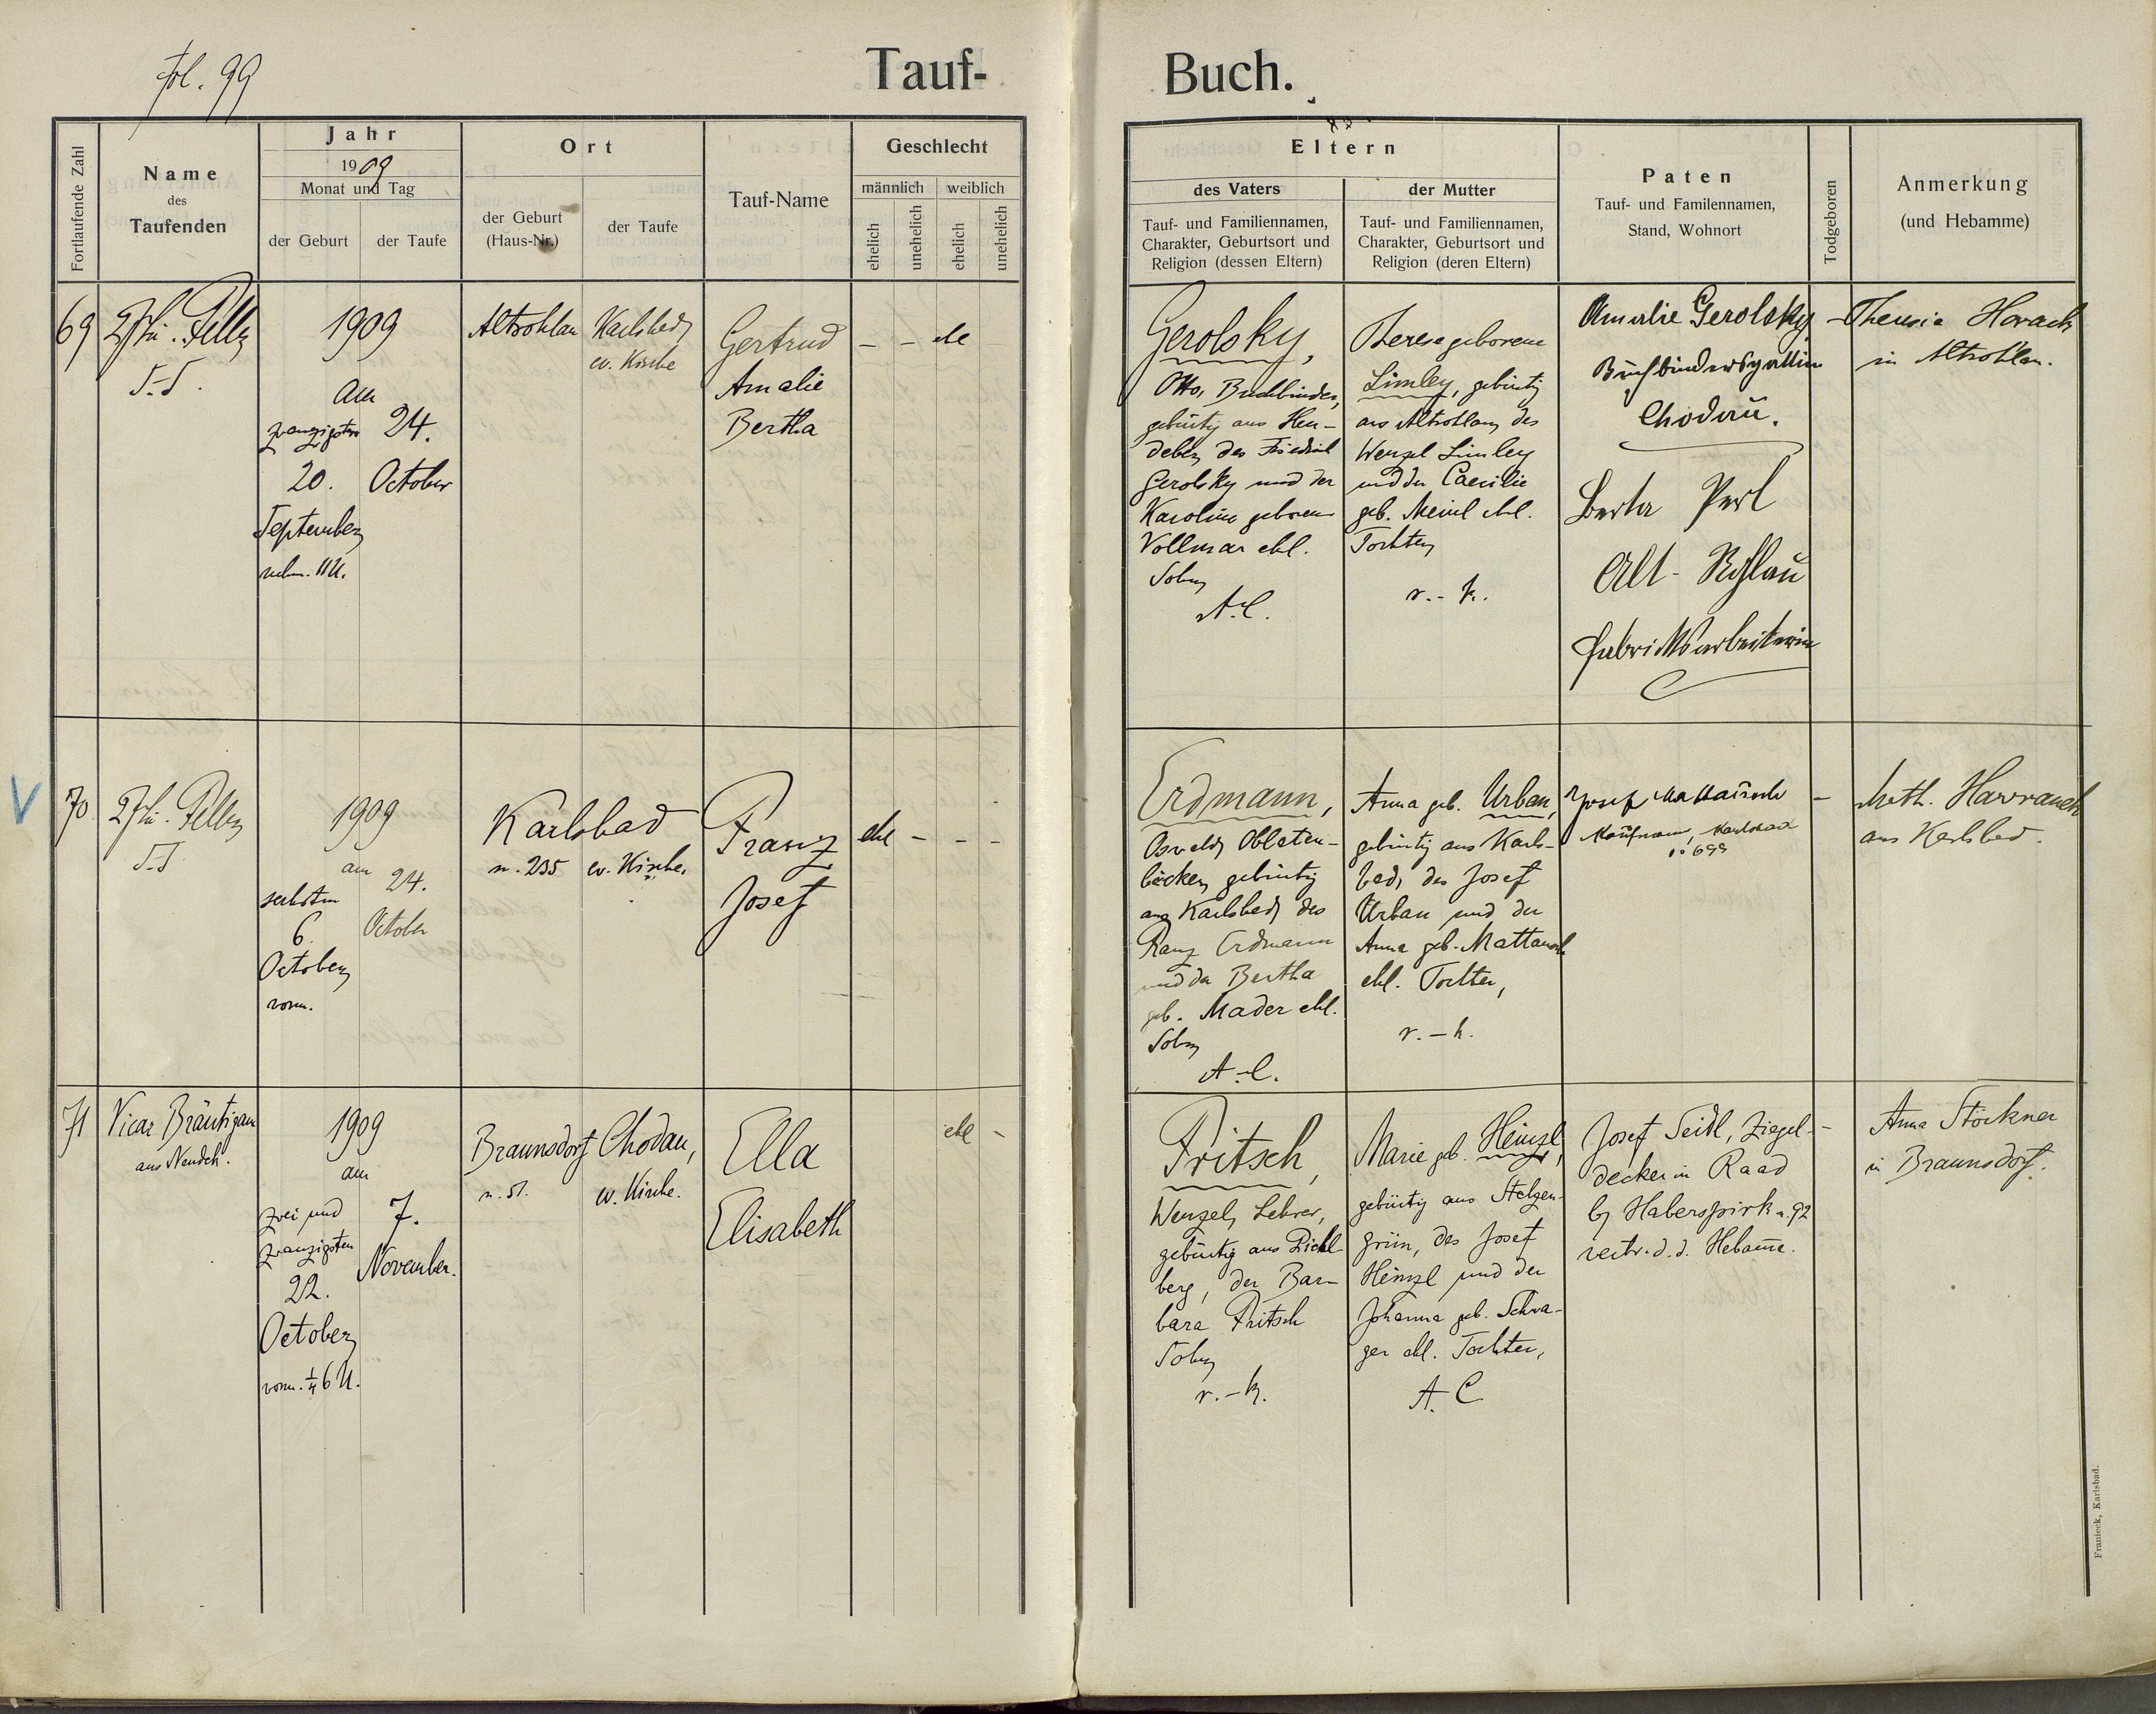 fol. 99
Tauf-
Buch.
Fortlaufende Zahl
Name
des
Taufenden
Jahr
1909
Monat und Tag
der Geburt
der Taufe
Ort
der Geburt
(Haus-Nr.)
der Taufe
Tauf-Name
Geschlecht
männlich
weiblich
ehelich
unehelich
ehelich
unehelich
Eltern
des Vaters
Tauf- und Familiennamen,
Charakter, Geburtsort und
Religion (dessen Eltern)
der Mutter
Tauf- und Familiennamen,
Charakter, Geburtsort und
Religion (deren Eltern)
Paten
Tauf- und Familennamen,
Stand, Wohnort
Todgeboren
Anmerkung
(und Hebamme)
69
1909
am
zwanzigsten
20.
September
11 U.
24.
October
Altrohlau
Karlsbad
ev. Kirche
Gertrud
Amalie
Bertha
- - ehe
Gerolsky,
Otto, Buchbinder,
gebürtig aus Heu-
deber, des Friedrich
Gerolsky und der
Karoline geborene
Vollmar ehl.
Sohn
A.C.
Therese geborene
Limley, gebürtig
aus Altrohlau, des
Wenzel Limley
und der Caecilie
geb. Meinl ehl.
Tochter
r.-k.
Amalie Gerolsky
Buchbindersgattin
Chodau.
Berta Perl
Alt-Rohlau
Fabriksarbeiterin
-
Theresia Horack
in Altrohlau.
V
70
1909
am
sechsten
6.
October
vorm.
24.
October
Karlsbad
n. 235
ev. Kirche.
Franz
Josef
ehe - - -
Erdmann,
Oswald, Oblaten-
bäcker, gebürtig
aus Karlsbad, des
Franz Erdmann
und der Bertha
geb. Mader ehl.
Sohn
A.C.
Anna geb. Urban,
gebürtig aus Karls-
bad, des Josef
Urban und der
Anna geb. Mattausch
ehl. Tochter,
r.-k.
Josef Mattausch
Kaufmann, Karlsbad
699
-
Math. Hawranek
aus Karlsbad.
71
Vicar Bräutigam
aus Neudek.
1909
am
zwei und
zwanzigsten
22.
October
vorm. ¼6 U.
7.
November.
Braunsdorf
n. 51.
Chodau,
ev. Kirche.
Ella
Elisabeth
ehe -
Fritsch,
Wenzel, Lehrer,
gebürtig aus Pichl-
berg, der Bar-
bara Fritsch
Sohn
r.-k.
Marie geb. Heinzl,
gebürtig aus Stelzen-
grün, des Josef
Heinzl und der
Johanna geb. Schwa-
ger ehl. Tochter,
A.C
Josef Seidl, Ziegel-
decker in Raad
b/ Haberspirk n. 92
vertr. d. d. Hebamme.
-
Anna Stöckner
in Braunsdorf.
Franieck, Karlsbad.